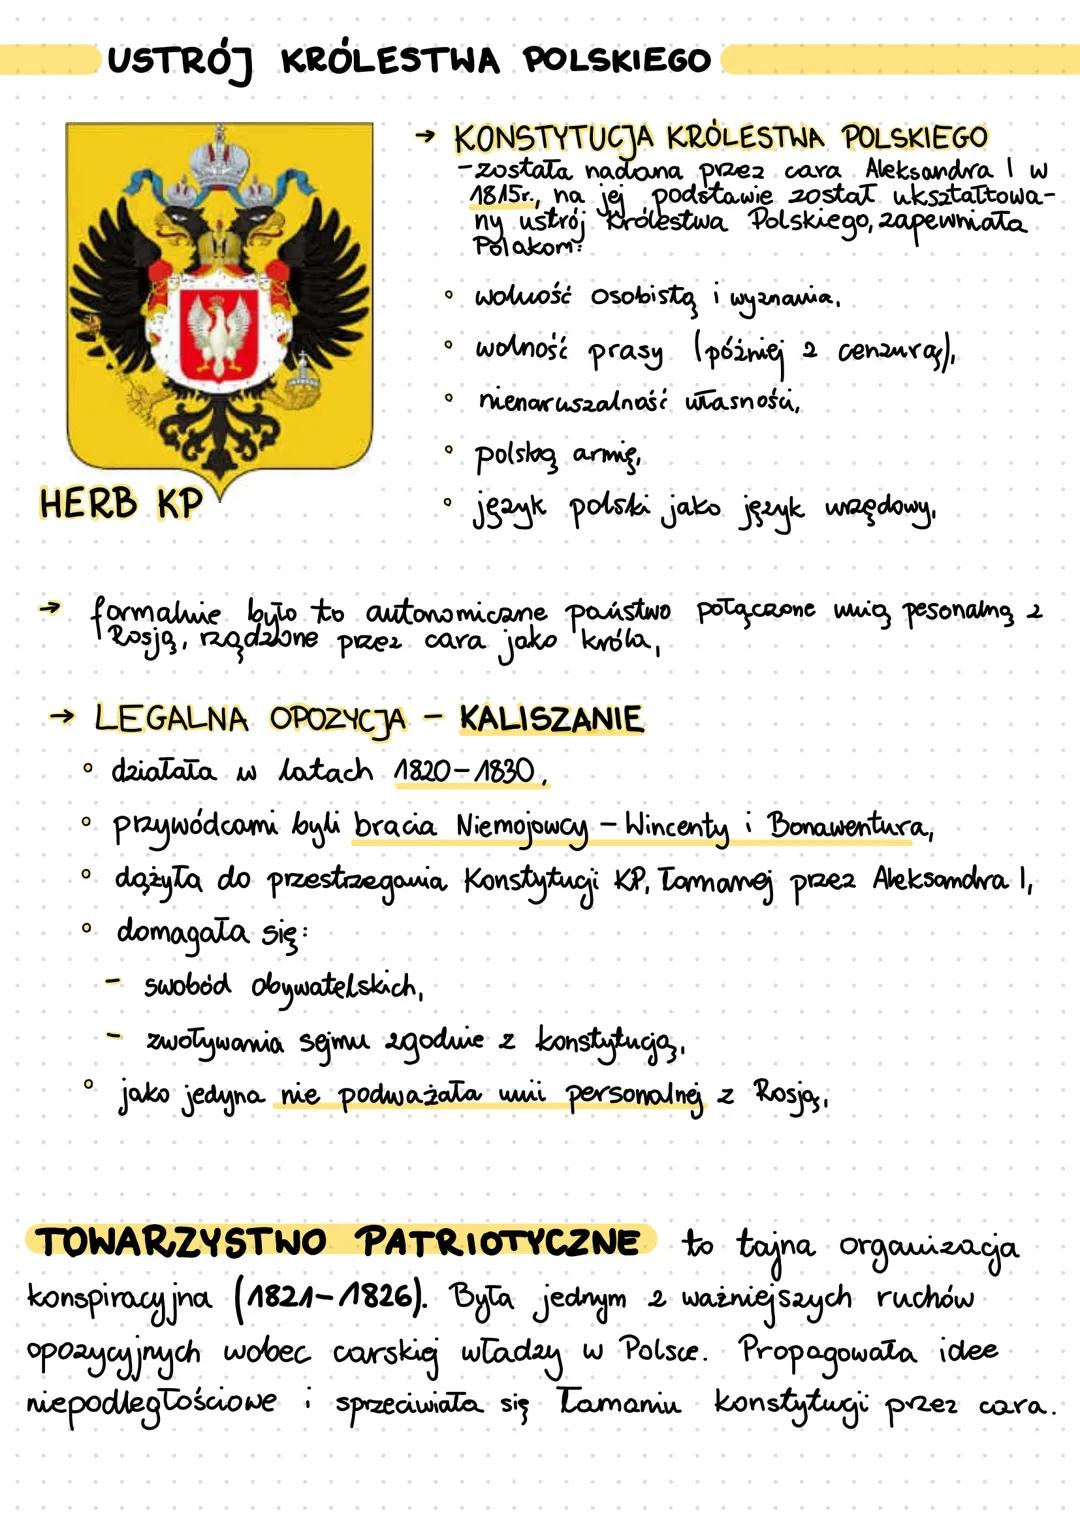 USTRÓJ KRÓLESTWA POLSKIEGO
→ KONSTYTUCJA KRÓLESTWA POLSKIEGO
- została nadana przez cara Aleksandra I w
1815r., na jej podstawie został ukształtowa-
ny ustrój Królestwa Polskiego, zapewniała
Polakom:
• wolność osobistą i wyznania,
• wolność prasy (później z cenzurą),
• nienaruszalność własności,
• polską armię,
• język polski jako język urzędowy,
HERB KP
→ formalnie było to autonomiczne państwo połączone unią pesonalną z
Rosją, rządzone przez cara jako króla,
→ LEGALNA OPOZYCJA - KALISZANIE
• działała w latach 1820-1830,
• przywódcami byli bracia Niemojowcy - Wincenty i Bonawentura,
• dążyła do przestrzegania Konstytucji KP, łamanej przez Aleksandra I,
• domagała się:
- swobód obywatelskich,
- zwoływania sejmu zgodnie z konstytucją,
• jako jedyna nie podważała unii personalnej z Rosją,
TOWARZYSTWO PATRIOTYCZNE to tajna organizacja
konspiracyjna (1821-1826). Była jednym z ważniejszych ruchów
opozycyjnych wobec carskiej władzy w Polsce. Propagowała idee
niepodległościowe i sprzeciwiała się łamaniu konstytucji przez cara.